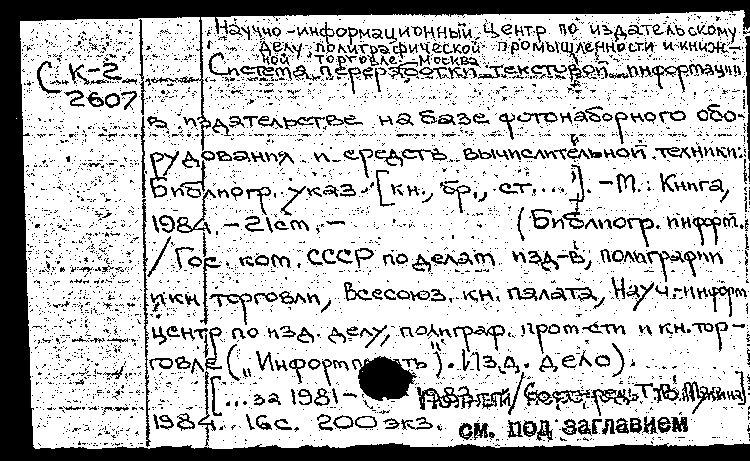 Научно-информационный центр по издательскому
делу, полиграфической промышленности и книж-
ной торговле.-Москва
С К-2
2607
Система переработки текстовой информации
в издательстве на базе фотонаборного обо-
рудования и средств вычислительной техники:
Библиогр. указ. [кн., бр., ст. ...]. -М.: Книга,
1984. -21см. -
(Библиогр. информ.
/Гос. ком. СССР по делам изд-в, полиграфии
и кн. торговли, Всесоюз. кн. палата, Науч.-информ
центр по изд. делу, полиграф. пром-сти и кн. тор-
говле ("Информпечать"). Изд. дело).
[...за 1981- 1983
1984. 16с. 200 экз.
см. под заглавием